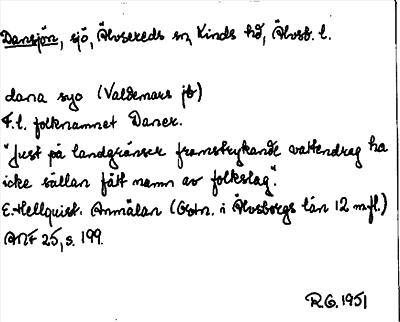 Dansjön, sjö, Älvsereds sn, Kinds hd, Älvsb. l.
dana syo (Valdemars jb)
F.l. folknamnet Daner.
"Just på landgränser framstrykande vattendrag ha
icke sällan fått namn av folkslag".
E. Hellquist. Anmälan (Ortn. i Älvsborgs län 12 m.fl.)
ANF 25, s. 199.
R.G. 1951